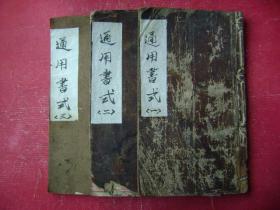 通用書式
(一)
通用書式
(二)
通用書式
(三)